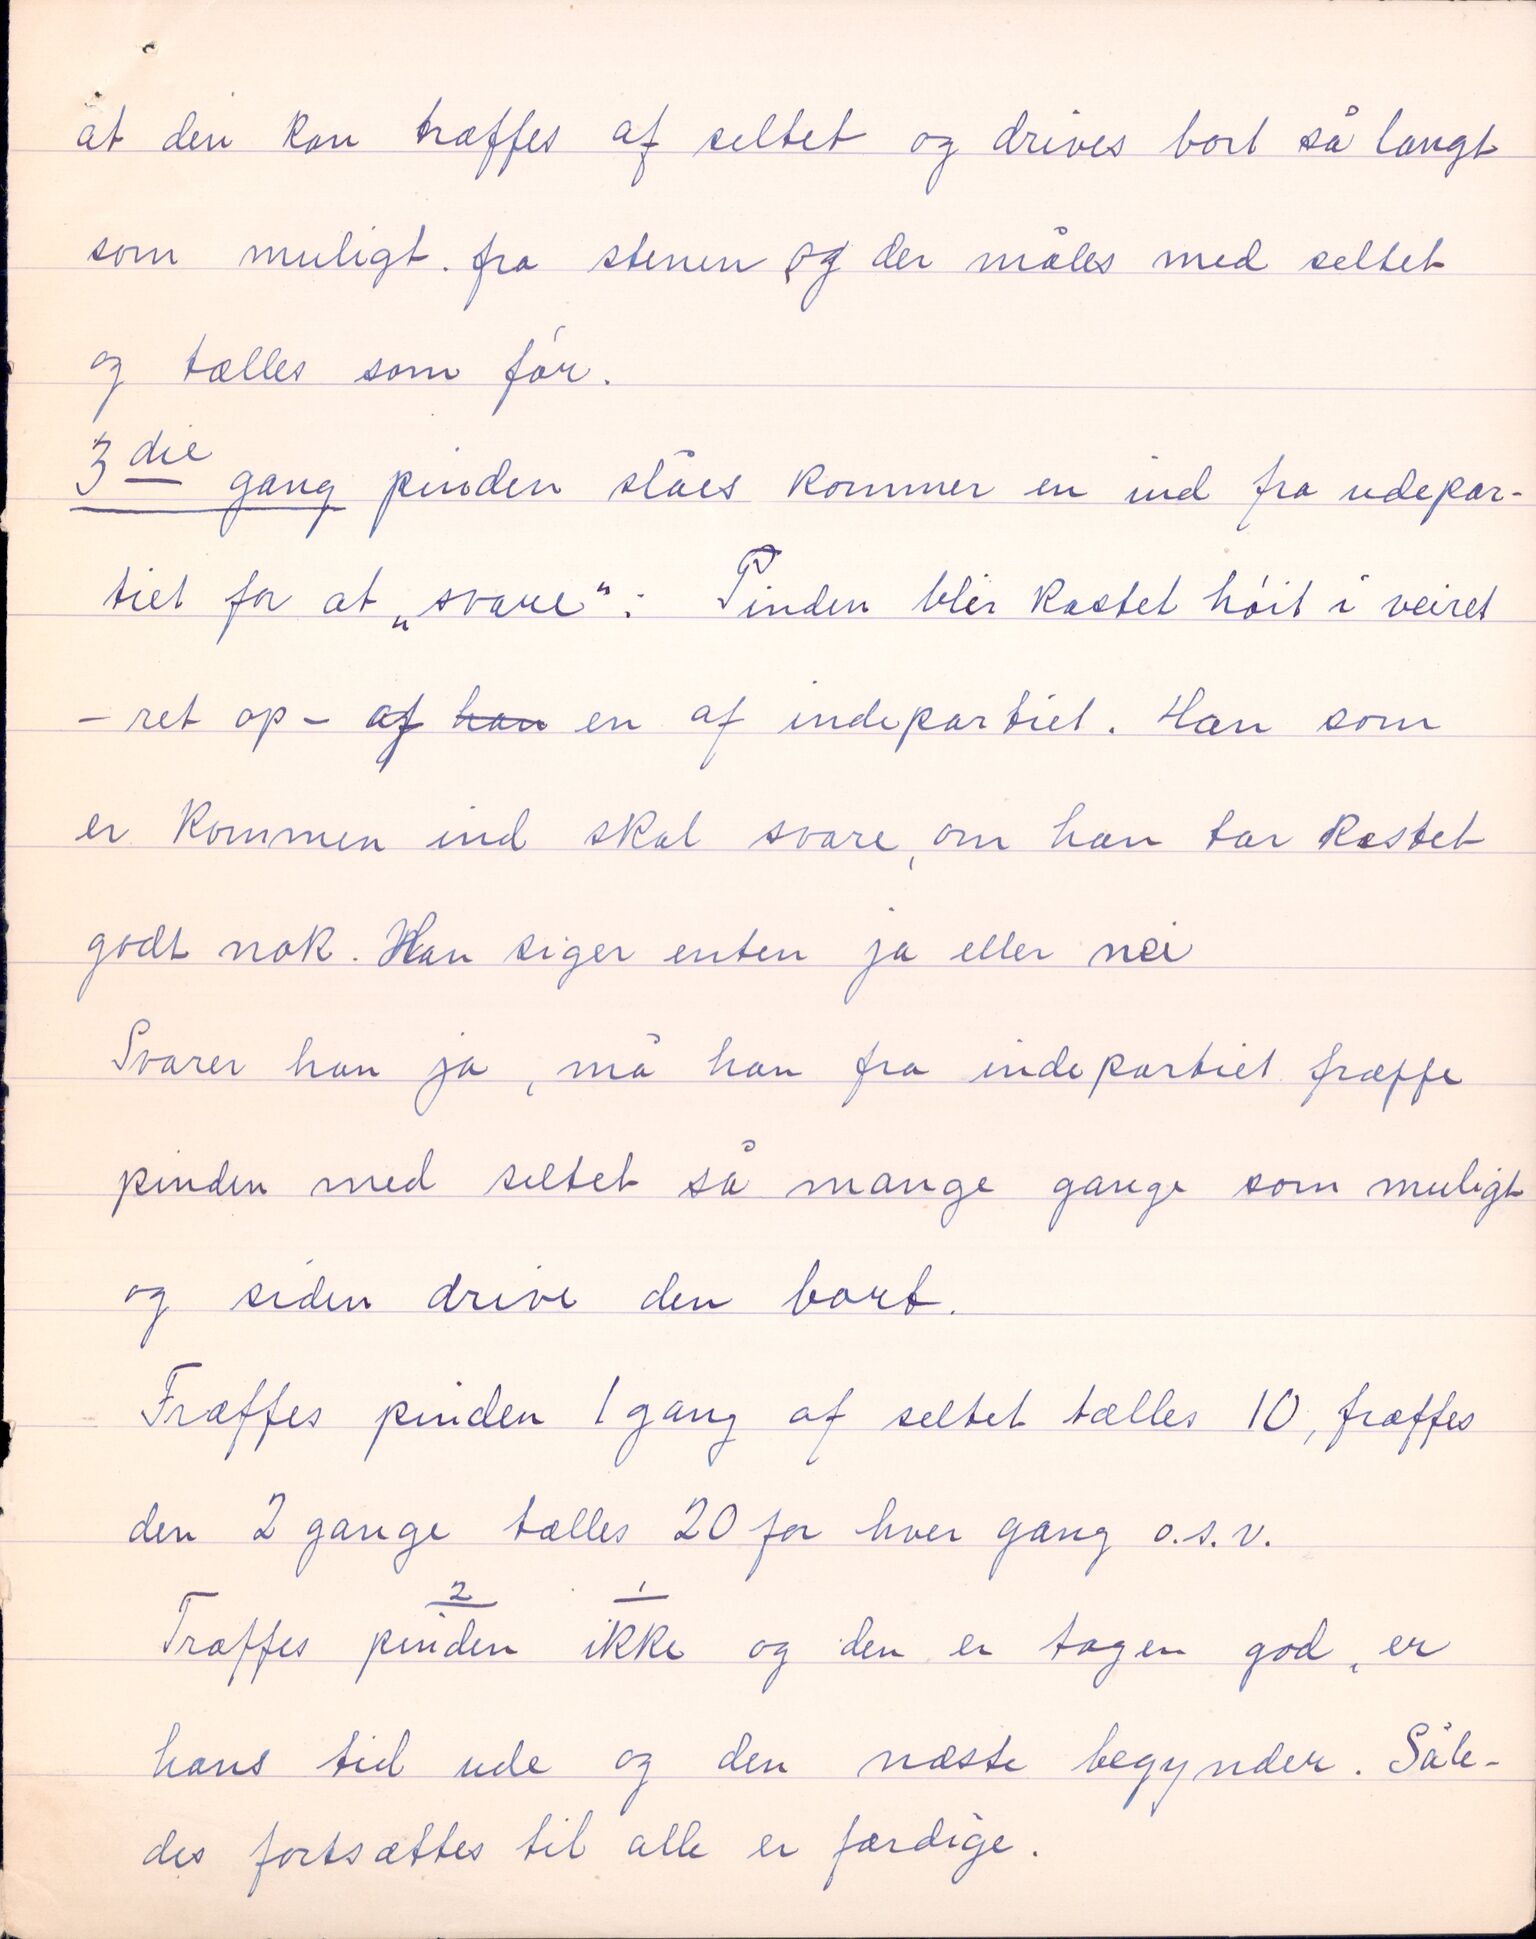 at den kan træffes af seltet og drives bort så langt
som muligt. fra stenen og der måles med seltet
og tælles som før.
3die gang pinden slåes kommer en ind fra udepar-
tiet for at „svare": Pinden blir kastet høit i veiret
- ret op - af han en af indepartiet. Han som
er kommen ind skal svare, om han tar kastet
godt nok. Han siger enten ja eller nei
Svarer han ja, må han fra indepartiet træffe
pinden med seltet så mange gange som muligt
og siden drive den bort.
Træffes pinden 1 gang af seltet tælles 10, træffes
den 2 gange tælles 20 for hver gang o.s.v.
2 1
Træffes pinden ikke og den er tagen god, er
hans tid ude og den næste begynder. Såle-
des fortsættes til alle er færdige.